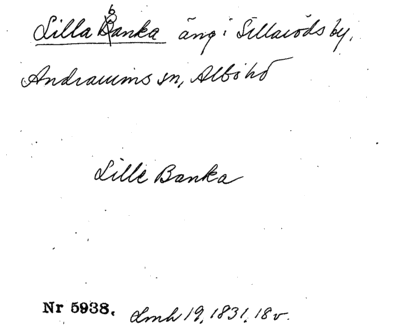 Lilla Banka äng i Sillaröds by,
Andrarums sn, Albo hd
Lille Banka
Nr 5938. Lmh 19, 1831, 18 v.